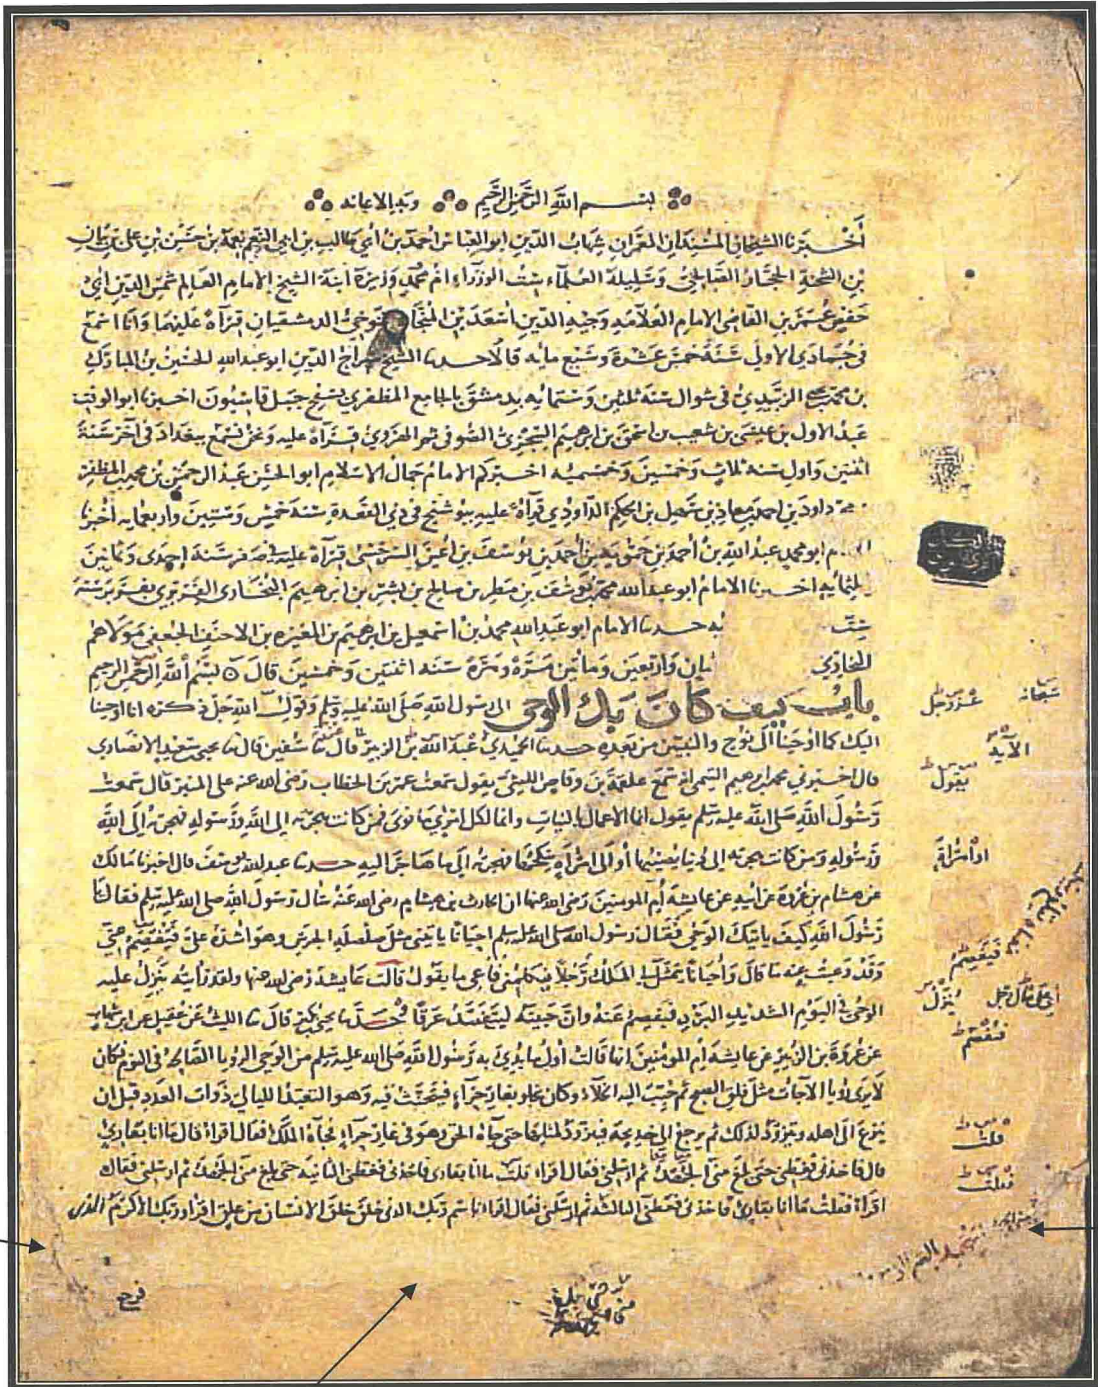 بسم الله الرحمن الرحيم وبه الاعانه
أخبرنا الشيخان المسندان المعمران شهاب الدين ابو العباس احمد بن أبي طالب بن ابي النعم نعمة بن حسن بن علي بن بيان
بن الشحنة الحجار الصالحي وسليلة العلماء ست الوزراء ام محمد وزيرة ابنة الشيخ الامام العالم شمس الدين أبي
حفص عمر بن القاضي الامام العلامه وجيه الدين أسعد بن المنجا التنوخي الدمشقيان قراءة عليهما وأنا اسمع
في جمادي الأولي سنة خمس عشرة وسبع مائه قالا حدثنا الشيخ سراج الدين ابو عبد الله الحسين بن المبارك
بن محمد الزبيدي في شوال سنة ثلثين وستمايه بدمشق بالجامع المظفري بسفح جبل قاسيون اخبرنا ابو الوقت
عبد الاول بن عيسى بن شعيب بن اسحق بن ابرهيم السجزي الصوفي ثم الهروي قراءة عليه ونحن نسمع ببغداد في آخر سنة
اثنتين واول سنه ثلاث وخمسين وخمسميه اخبركم الامام جمال الاسلام ابو الحسن عبد الرحمن بن محمد بن المظفر
داود بن احمد بن معاذ بن سهل بن الحكم الداودي قرأة عليه ببوشنج في ذي القعدة سنة خمس وستين واربعمايه أخبرنا
ام ابو محمد عبد الله بن أحمد بن حمويه بن أحمد بن يوسف بن أعين السرخسي قراءة عليه في صفر سنة احدى وثمانين
ثلثمايه اخبرنا الامام ابو عبد الله محمد بن يوسف بن مطر بن صالح بن بشر بن ابرهيم البخاري الفربري بفربر سنة
ست يه حدثنا الامام ابو عبد الله محمد بن اسمعيل بن ابرهيم بن المغيره بن الاحنف الجعفي مولاهم
البخاري مان واربعين ومأتين مرة ومرة سنه اثنتين وخمسين قال بسم الله الرحمن الرحيم
باب كيف كان بدء الوحي الى رسول الله صلى الله عليه وسلم وقول الله جل ذكره انا اوحينا
اليك كما أوحينا الى نوح والنبيين من بعده حدثنا الحميدي عبد الله بن الزبير قال ثنا سفين قال ثنا يحيى بن سعيد الانصاري
قال اخبرني محمد بن ابرهيم التيمي انه سمع علقمة بن وقاص الليثي يقول سمعت عمر بن الخطاب رضي الله عنه على المنبر قال سمعت
رسول الله صلى الله عليه وسلم يقول انما الاعمال بالنيات وانما لكل امرئ ما نوى فمن كانت هجرته الى الله ورسوله فهجرته إلى الله
ورسوله ومن كانت هجرته الى دنيا يصيبها أو الى امرأة ينكحها فهجرته إلى ما هاجر اليه حدثنا عبد الله بن يوسف قال اخبرنا مالك
عن هشام بن عروة عن أبيه عن عايشة أم المومنين رضي الله عنها ان الحارث بن هشام رضي الله عنه سال رسول الله صلى الله عليه وسلم فقال يا
رسول الله كيف ياتيك الوحي فقال رسول الله صلى الله عليه وسلم احيانا ياتيني مثل صلصلة الجرس وهو اشده علي فيفصم عني
وقد وعيت عنه ما قال وأحيانا يتمثل لي الملك رجلا فيكلمني فأعي ما يقول قالت عايشة رضي الله عنها ولقد رأيته ينزل عليه
الوحي في اليوم الشديد البرد فيفصم عنه وان جبينه ليتفصد عرقا حدثنا يحيى بن بكير قال ثنا الليث عن عقيل عن ابن شهاب
عن عروة بن الزبير عن عايشة أم المومنين انها قالت أول ما بدئ به رسول الله صلى الله عليه وسلم من الوحي الرويا الصالحة في النوم فكان
لا يرى رويا الا جات مثل فلق الصبح ثم حبب اليه الخلاء وكان يخلو بغار حراء فيتحنث فيه وهو التعبد الليالي ذوات العدد قبل ان
ينزع الى اهله ويتزود لذلك ثم يرجع إلى خديجة فيتزود لمثلها حتى جاه الحق وهو في غار حراء فجاه الملك فقال اقرا قال ما انا بقاري
قال فاخذني فغطني حتى بلغ مني الجهد ثم ارسلني فقال اقراء قلت ما انا بقاري فاخذني فغطني الثانية حتى بلغ مني الجهد ثم ارسلني فقال
اقرأ فقلت ما أنا بقاري فاخذني فغطني الثالثة ثم ارسلني فقال اقراء باسم ربك الذي خلق خلق الانسان من علق اقرا وربك الاكرم الذي
سبحانه
عز وجل
الآيه
يقول
او امراة
فيفصم
ينزل
فيفصم
قلت
فقلت
فرح